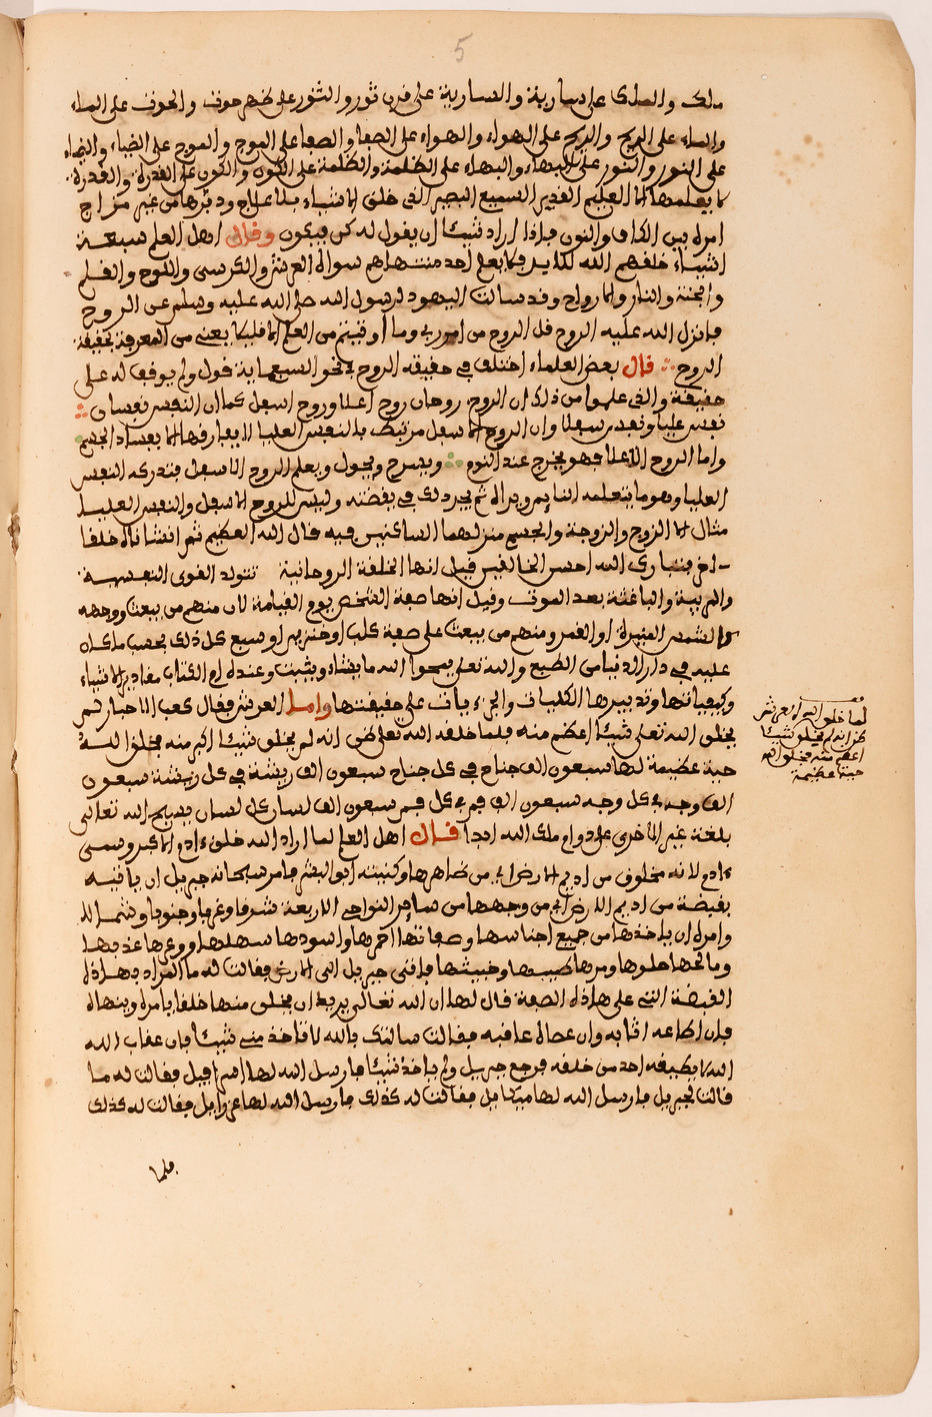 5
ملك والملك على سارية والسارية على قرن ثور والثور على ظهر حوت والحوت على الماء
والماء على الريح والريح على الهواء والهواء على الصفا والصفا على الموج والموج على الضياء والضياء
على النور والنور على البهاء والبهاء على الظلمة والظلمة على الكون والكون على القدرة والقدرة
لا يعلمها الا العليم القدير السميع البصير الذي خلق الاشياء بلا علاج ودبرها من غير مزاج
امره بين الكاف والنون فاذا اراد شيئا ان يقول له كن فيكون وقال اهل العلم سبعة
اشياء خلقهم الله للابد فلا يعلم احد منتهاهم سواه العرش والكرسي واللوح والقلم
والجنة والنار والارواح وقد سالت اليهود لرسول الله صلى الله عليه وسلم عن الروح
فانزل الله عليه الروح قل الروح من امر ربي وما أوتيتم من العلم الا قليلا يعني من المعرفة بحقيقة
الروح قال بعض العلماء اختلف في حقيقة الروح على نحو السبعماية قول ولم يوقف له على
حقيقة والذي علموا من ذلك ان الروح روحان روح اعلا وروح اسفل كما ان النفس نفسان
نفس عليا ونفس سفلا وان الروح الاسفل مرتبط بالنفس العليا لا يفارقها الا بفساد الجسم
واما الروح الاعلا فهو يخرج عند النوم ويسرح ويجول ويعلم الروح الاسفل فتدركه النفس
العليا وهو ما يتعلمه النايم ويراه ثم يجد ذلك في يقظته وليس للروح الاسفل والنفس العليا
مثال الا الزوج والزوجة والجسم منزلهما الساكنين فيه قال الله العظيم ثم انشاناه خلقا
اخر فتبارك الله احسن الخالقين قيل انها الخلقة الروحانية تتولد القوى النفسية
والمربية والباعثة بعد الموت وقيل انها صفة الشخص يوم القيامة لان منهم من يبعث ووجهه
كالشمس المنيرة او القمر ومنهم من يبعث على صفة كلب او خنزير او سبع كل ذلك بحسب ما كان
عليه في دار الدنيا من الطبع والله تعلى يمحوا الله ما يشاء ويثبت وعنده ام الكتاب مقادير الاشياء
وكيفياتها وتدبيرها الكليات والجزءيات على حقيقتها واما العرش فقال كعب الاحبار لم
يخلق الله تعلى شيئا اعظم منه فلما خلقه الله تعلى ظن انه لم يخلق شيئا اكبر منه فخلق الله
حية عظيمة لها سبعون الف جناح في كل جناح سبعون الف ريشة في كل ريشة سبعون
الف وجه في كل وجه سبعون الف فم في كل فم سبعون الف لسان كل لسان يسبح الله تعالى
بلغة غير الاخرى على دوام ملك الله ابدا قال اهل العلم لما اراد الله خلق ءادم الاكبر وسمى
ءادم لانه مخلوق من اديم الارض اي من ظاهرها وكنيته ابو البشر فامر سبحانه جبريل ان ياتيه
بقبضة من اديم الارض اي من وجهها من ساير النواحي الاربعة شرقا وغربا وجنوبا وشمالا
وامره ان ياخذها من جميع اجناسها وصفاتها احمرها واسودها سهلها ووعرها عذبها
ومالحها حلوها ومرها طيبها وخبيثها فاتى جبريل الى الارض فقالت له ما المراد بهاذه
القبضة التي على هاذه الصفة قال لها ان الله تعالى يريد ان يخلق منها خلقا يامره وينهاه
فان اطاعه اثابه وان عصاه عاقبه فقالت سالتك بالله لا تاخذ مني شيئا فان عقاب الله
لا يطيقه احد من خلقه فرجع جبريل ولم ياخذ شيئا فارسل الله لها اسرافيل فقالت له ما
قالت لجبريل فارسل الله لها ميكايل فقالت له كذلك فارسل الله لها عزرايل فقالت له كذلك
فلما
لما خلق الله العرش
ظن انه لم يخلق شيئا
اعظم منه فخلق الله
حية عظيمة